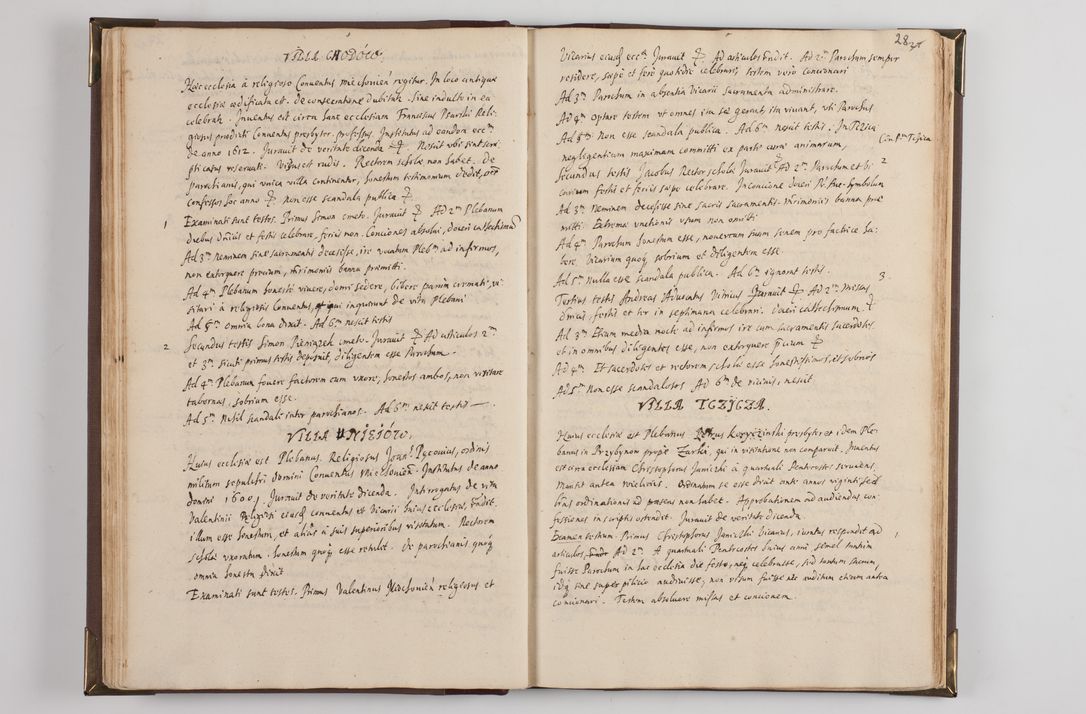 VILLA CHODÓW.
Haec ecclesia à religioso Conventus miechovien regitur. In loco antiquae
ecclesiae aedificata est. de consecratione dubitat. Sine indulto in ea
celebrat. Inventus est circa hanc ecclesiam Franciscus Psarski Reli-
giosus praedicti Conventus presbyter professus. Institutus ad eandem ecc.m
de anno 1612. Juravit de veritate dicenda. Nescit ubi sint scri-
pti casus reservati. Visus est rudis. Rectorem scholae non habet. De
parochianis, qui unica villa continentur, honestum testimonium dedit, oes
confessos hoc anno non esse scandala publica
1 Examinati sunt testes. Primus Simon cmeto. Juravit Ad 2.m Plebanum
diebus dnicis et festis celebrare, feriis non. Conciones absolvi, doceri cathechismu
Ad 3.m neminem sine sacramentis decessisse, ire vocatum Pleb.m ad infirmos,
non extorquere precium, mrimoniis banna praemitti.
Ad 4.m Plebanum honestè vivere, domi sedere, bibere parum cremati, vi-
sitari à religiosis Conventus, qui inquirunt de vita Plebani
Ad 5.m omnia bona dixit. Ad 6.m nescit testis
2 Secundus testis Simon Pieniązek cmeto. Juravit Ad articulos 2.m
et 3.m sicuti primus testis deposuit, diligentem esse Parochum.
Ad 4.m Plebanum fovere factorem cum uxore, honestos ambos, non visitare
tabernas, sobrium esse.
Ad 5.m Nihil scandali inter parochianos. Ad 6.m nescit testis
VILLA UNIEIÓW.
Huius ecclesiae est Plebanus. Religiosus Joan. Pęcovius, ordinis
militum sepulchri domini Conventus Miechovien. Institutus de anno
domini 1600. Juravit de veritate dicenda. Interrogatus de vita
Valentinii Religiosi eiusq conventus et Vicarii huius ecclesiae, rndit
illum esse honestum, et aliàs à suis superioribus visitatum. Rectorem
scholae uxoratum. honestum quoq esse retulit. De parochianis quoq
omnia honesta dixit
Examinati sunt testes. Primus Valentinus Miechovien religiosus et
28
Vicarius eiusq ecc.ae Juravit Ad articulos rndit. Ad 2.m Parochum semper
residere, saepe et ferè quotidie celebrare, testem vero concionari
Ad 3.m Parochum in absentia Vicarii sacramenta administrare.
Ad 4.m optare testem ut omnes ita se gerant, ita vivant, uti Parochus
Ad 5.m Non esse scandala publica. Ad 6.m nescit testis. In Tczica
negligentiam maximam committi ex parte curae animarum,
2 Secundus testis Jacobus Rector scholae Juravit Ad 2.m Parochum et Vi-
carium festis et feriis saepe celebrare. In concione doceri Pr. Ave. Symbolum
Ad 3.m Neminem decessisse sine sacris sacramentis. mrimoniis banna prae
mitti. Extremae unctionis usum non omitti
Ad 4.m Parochum honestum esse, novercam suam senem pro factrice ha-
bere. Vicarium quoq sobrium et diligentem esse
Ad 5.m nulla esse scandala publica. Ad 6.m ignorat testis.
3. Tertius testis Andreas Advocatus Vitricus Juravit Ad 2.m Missas
dnicis, festis et ter in septimana celebrari. Doceri cathechismum
Ad 3.m Etiam media nocte ad infirmos ire cum sacramentis sacerdotes
et in omnibus diligentes esse, non extorquere pcium
Ad 4.m Et sacerdotes et rectorem scholae esse honestissimos, et sobrios
Ad 5.m Non esse scandalosos Ad 6.m de vicinis, nescit
VILLA TCZICZA.
Huius ecclesiae est Plebanus Petrus Koryczinski presbyter et idem Ple-
banus in Przybynow propè Żarki, qui in visitatione non comparuit. Inventus
est circa ecclesiam Christophorus Janiczki à quartuali Pentecostes serviens.
Mansit antea Ordinatum se esse dixit ante annos viginti, sed
lras ordinationis ad praesens non habet. Approbationem ad audiendas con-
fessiones in scriptis ostendit. Juravit de veritate dicenda
1 Examen testium. Primus Christophorus Janiczki Vicarius, iuratus respondit ad
articulos, Ad 2.m A quartuali Pentecostes huius anni semel tantum
fuisse Parochum in hac ecclesia die festo, neq celebrasse, sed tantum sacrum,
idq sine superpilicio audivisse, non visum fuisse nec auditum etiam antea
concionari. Testem absolvere missas et concionem.